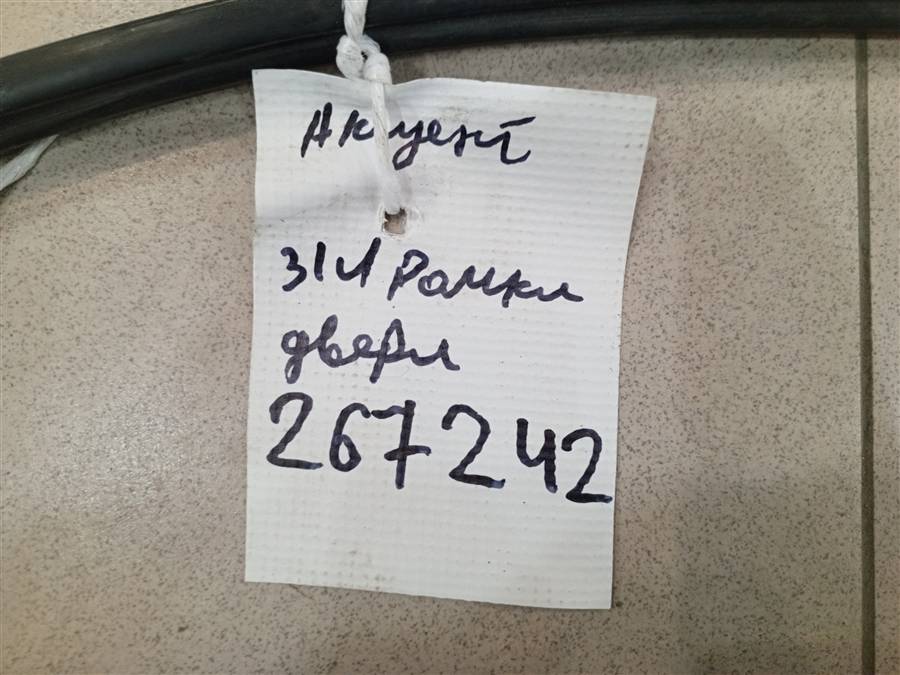 Акцент
З/Л Рамки
двери
267242